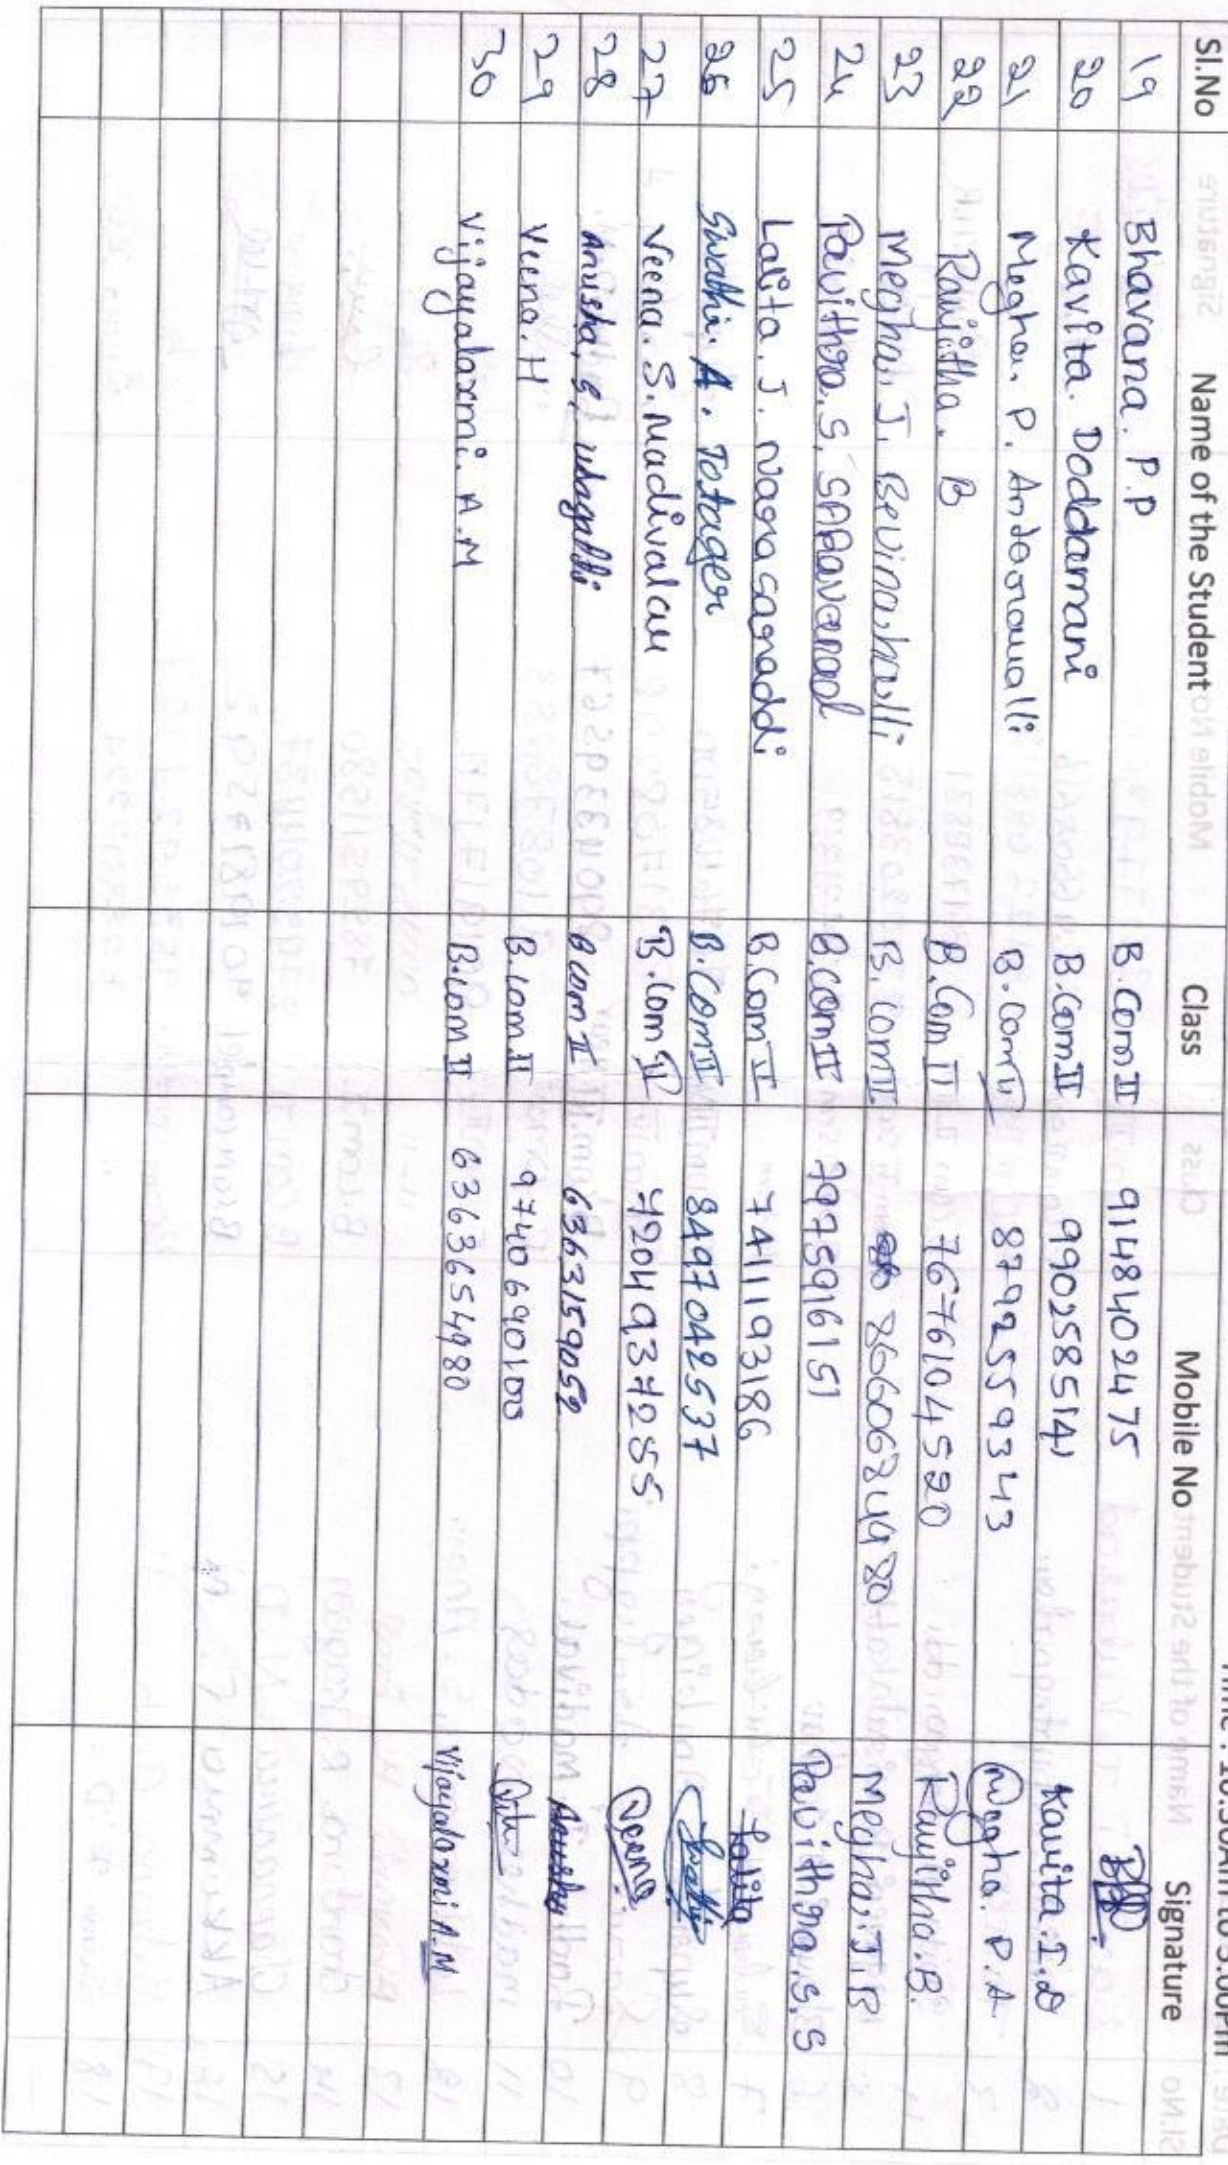 Time : 10:30Am to 5:00Pm
Sl.No Name of the Student Class Mobile No Signature
19 Bhavana. P.P B.Com II 9148402475
20 Kavita. Doddamani B.Com II 9902585141 Kavita.I.D
21 Megha. P. Andanawalli B.Com II 8792559343 Megha. P. A
22 Ranjitha. B B.Com II 7676104520 Ranjitha.B.
23 Megha. J. Bevinahalli B.Com II 8660684480 Megha.J.B
24 Pavithra. S. B.Com II 7975916151 Pavithra.S.S
25 Lalita. J. B.Com II 7411193186 Lalita
26 Swathi. A. Totager B.Com II 8497042537 Swathi
27 Veena. S. Madivalar B.Com II 7204937285 Veena
28 Anusha. B.com II 6363159052 Anusha
29 Veena. H B.Com II 9740690100
30 Vijayalaxmi. A.M B.Com II 6363654980 Vijayalaxmi A.M